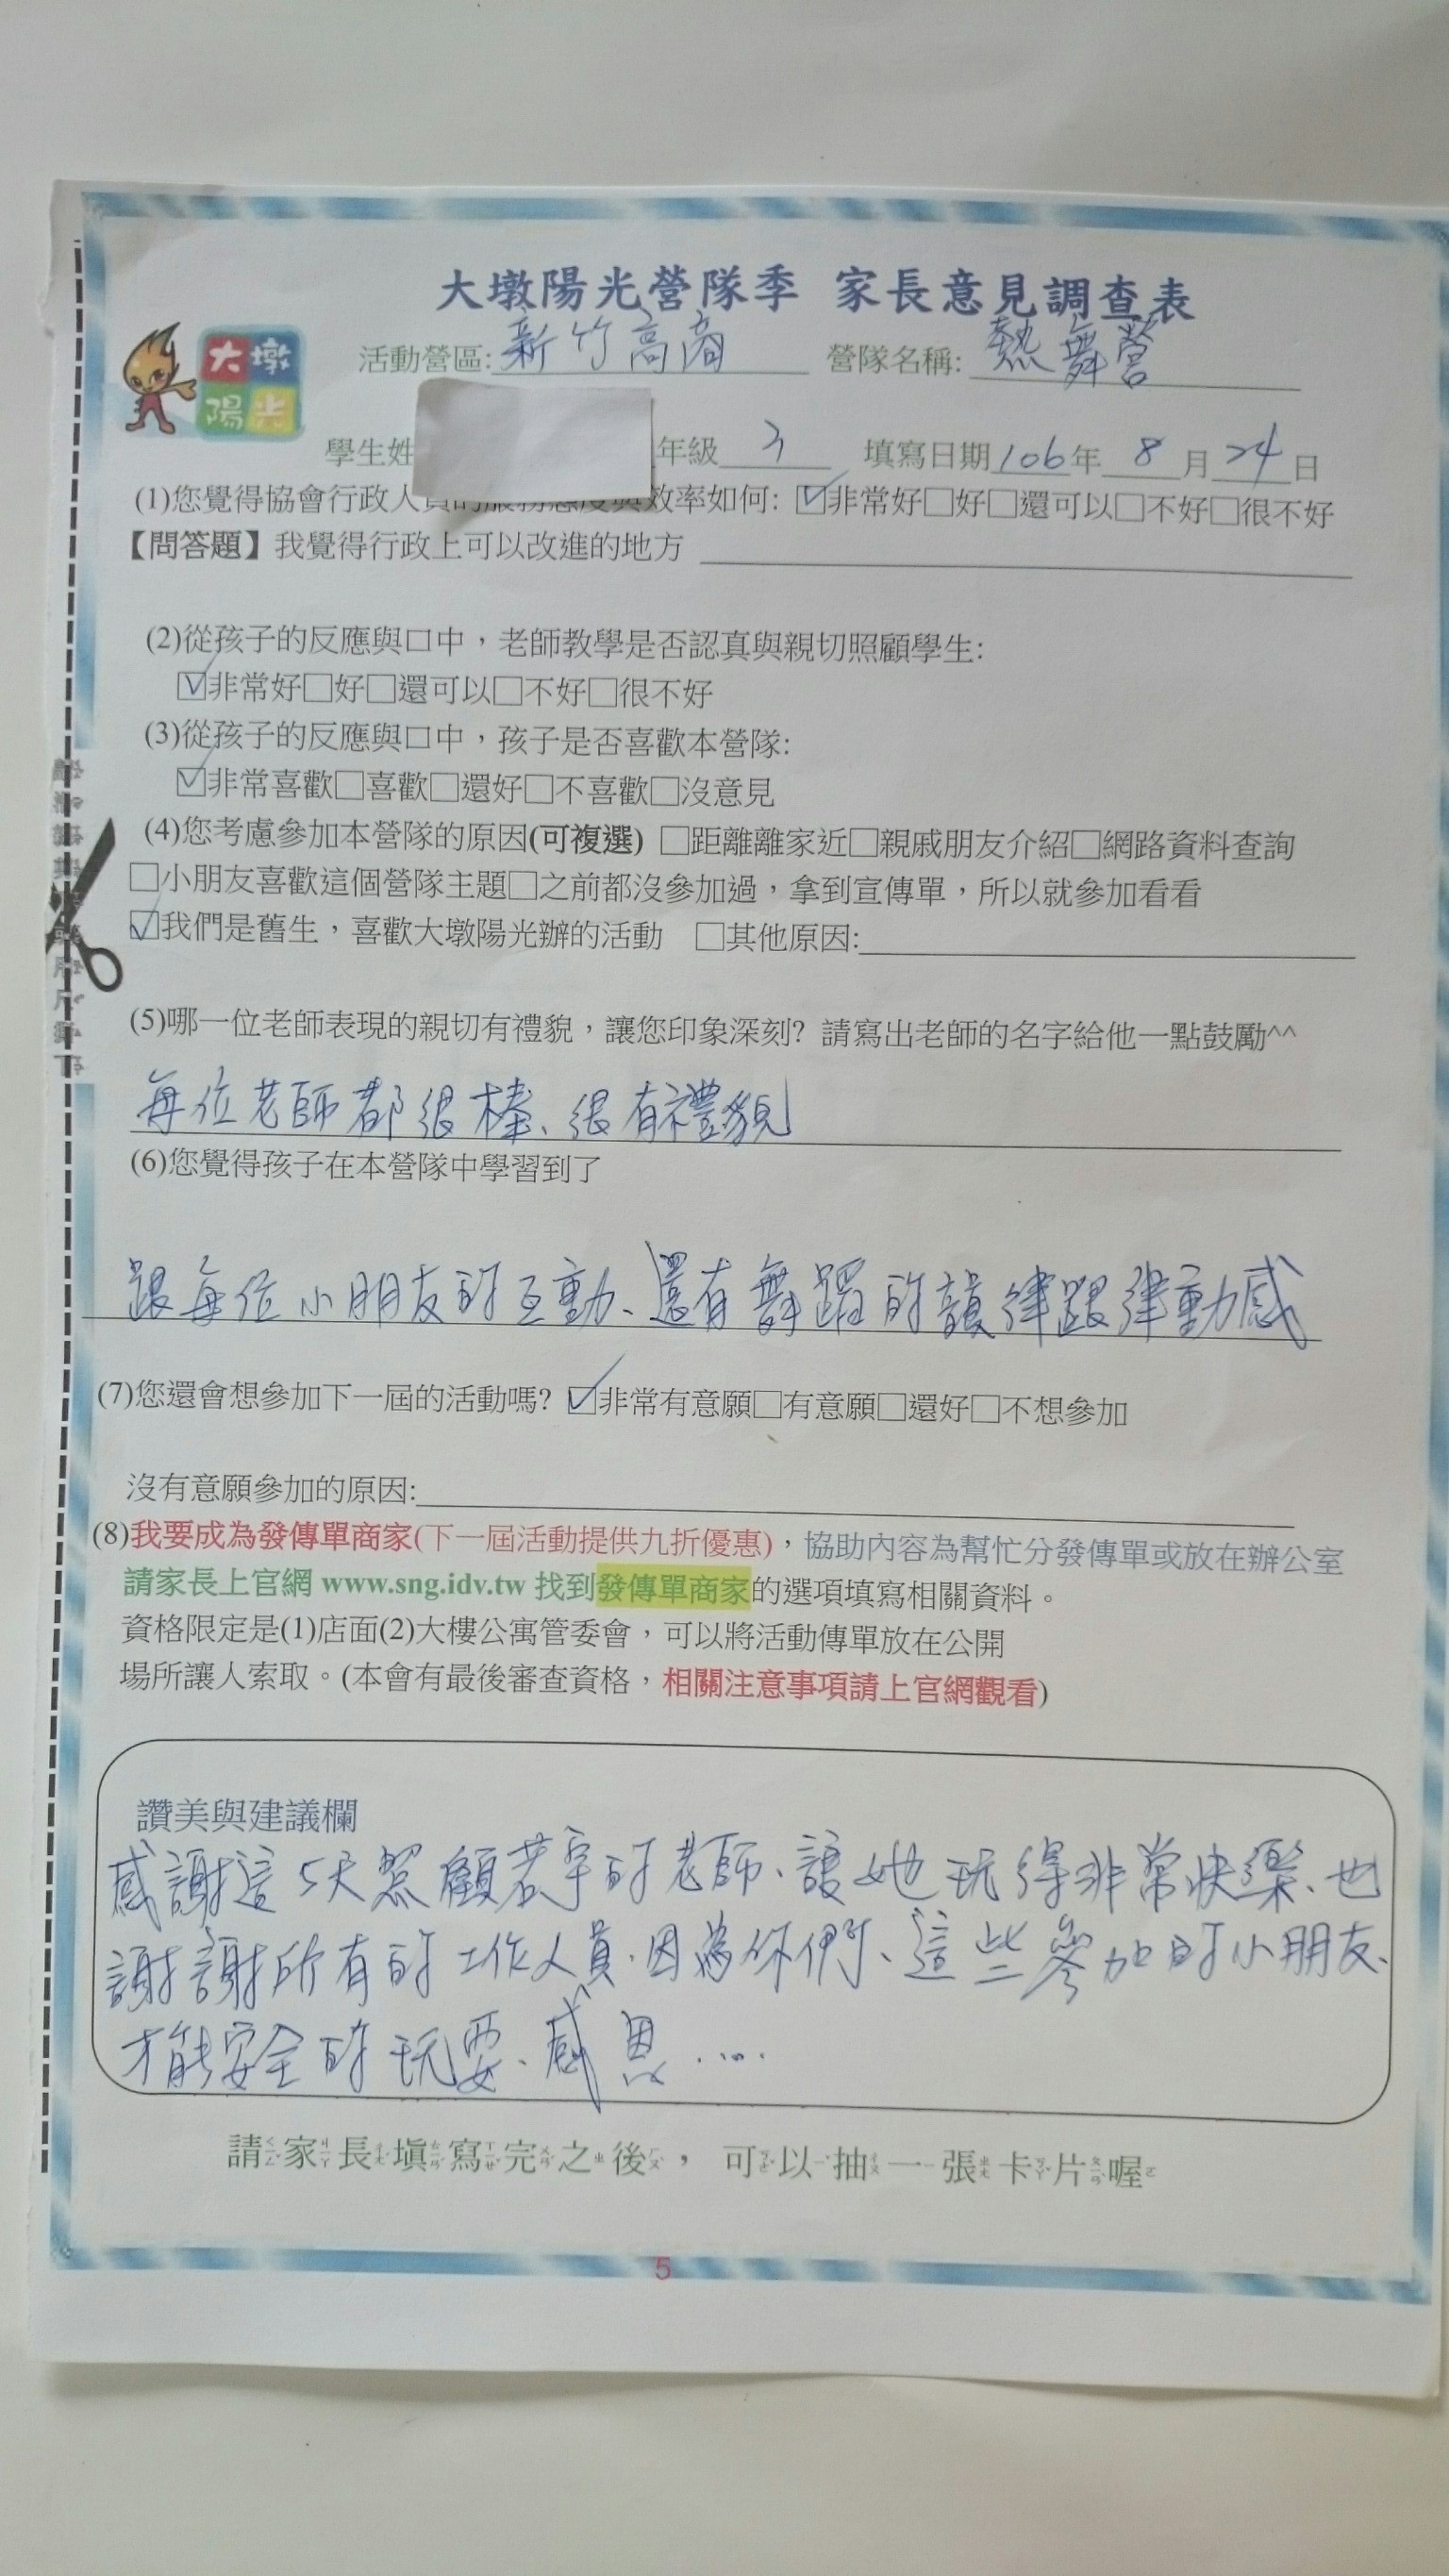 大墩陽光營隊季 家長意見調查表
大墩
陽光
活動營區:新竹高商 營隊名稱:熱舞營
學生姓 年級3 填寫日期106年8月24日
(1)您覺得協會行政人員的服務態度與效率如何:☑非常好□好□還可以□不好□很不好
【問答題】我覺得行政上可以改進的地方
(2)從孩子的反應與口中，老師教學是否認真與親切照顧學生:
☑非常好□好□還可以□不好□很不好
(3)從孩子的反應與口中，孩子是否喜歡本營隊:
☑非常喜歡□喜歡□還好□不喜歡□沒意見
(4)您考慮參加本營隊的原因(可複選) □距離離家近□親戚朋友介紹□網路資料查詢
□小朋友喜歡這個營隊主題□之前都沒參加過，拿到宣傳單，所以就參加看看
☑我們是舊生，喜歡大墩陽光辦的活動 □其他原因:
(5)哪一位老師表現的親切有禮貌，讓您印象深刻? 請寫出老師的名字給他一點鼓勵^^
每位老師都很棒、很有禮貌
(6)您覺得孩子在本營隊中學習到了
跟每位小朋友的互動、還有舞蹈的韻律跟律動感
(7)您還會想參加下一屆的活動嗎? ☑非常有意願□有意願□還好□不想參加
沒有意願參加的原因:
(8)我要成為發傳單商家(下一屆活動提供九折優惠)，協助內容為幫忙分發傳單或放在辦公室
請家長上官網 www.sng.idv.tw 找到發傳單商家的選項填寫相關資料。
資格限定是(1)店面(2)大樓公寓管委會，可以將活動傳單放在公開
場所讓人索取。(本會有最後審查資格，相關注意事項請上官網觀看)
讚美與建議欄
感謝這5天照顧若宇的老師、讓她玩得非常快樂、也
謝謝所有的工作人員.因為你們、這些參加的小朋友、
才能安全的玩耍、感恩.....
請家長填寫完之後， 可以抽一張卡片喔
5